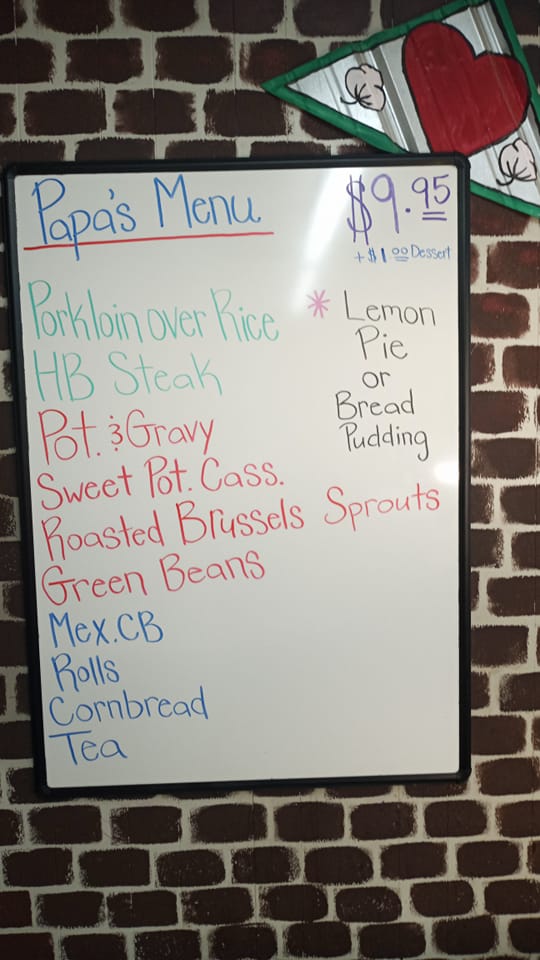 Papa's Menu
$9.95
+ $1.00 Dessert
Porkloin over Rice
HB Steak
Pot. & Gravy
Sweet Pot. Cass.
Roasted Brussels Sprouts
Green Beans
Mex. CB
Rolls
Cornbread
Tea
* Lemon
Pie
or
Bread
Pudding